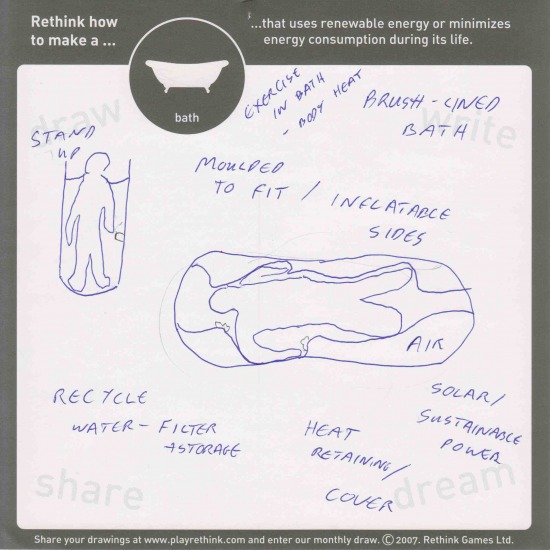 Rethink how
to make a ...
...that uses renewable energy or minimizes
energy consumption during its life.
bath
draw
write
EXERCISE
IN BATH
- BODY HEAT
BRUSH-LINED
BATH
STAND
UP
MOULDED
TO FIT / INFLATABLE
SIDES
AIR
RECYCLE
WATER - FILTER
& STORAGE
HEAT
RETAINING/
COVER
SOLAR/
SUSTAINABLE
POWER
share
dream
Share your drawings at www.playrethink.com and enter our monthly draw. © 2007. Rethink Games Ltd.